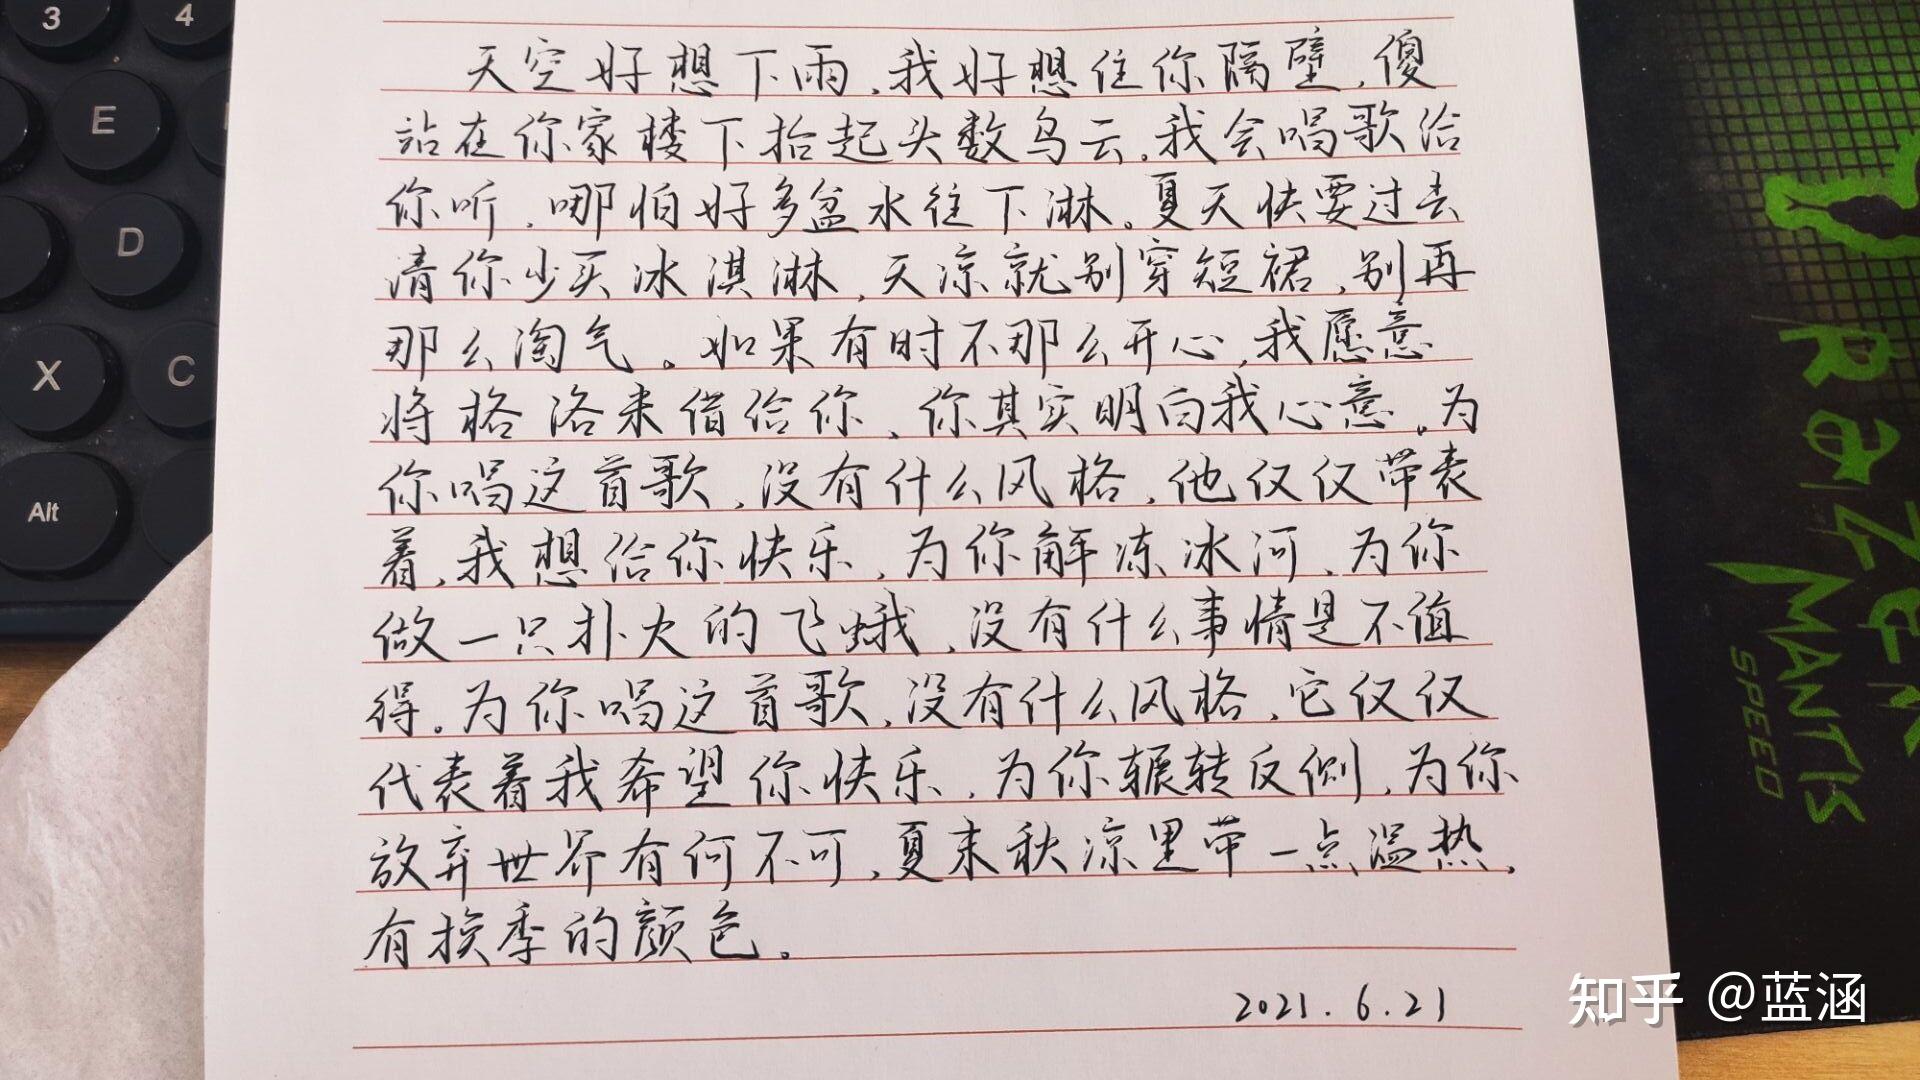 天空好想下雨，我好想住你隔壁，傻
站在你家楼下抬起头数乌云。我会唱歌给
你听，哪怕好多盆水往下淋。夏天快要过去
请你少买冰淇淋，天凉就别穿短裙，别再
那么淘气。如果有时不那么开心，我愿意
将格洛米借给你，你其实明白我心意。为
你唱这首歌，没有什么风格，他仅仅带表
着，我想给你快乐，为你解冻冰河，为你
做一只扑火的飞蛾，没有什么事情是不值
得。为你唱这首歌，没有什么风格，它仅仅
代表着我希望你快乐，为你辗转反侧，为你
放弃世界有何不可，夏末秋凉里带一点温热，
有换季的颜色。
2021.6.21
3
4
E
D
X
C
Alt
RaZER
MANTIS
SPEED
知乎 @蓝涵